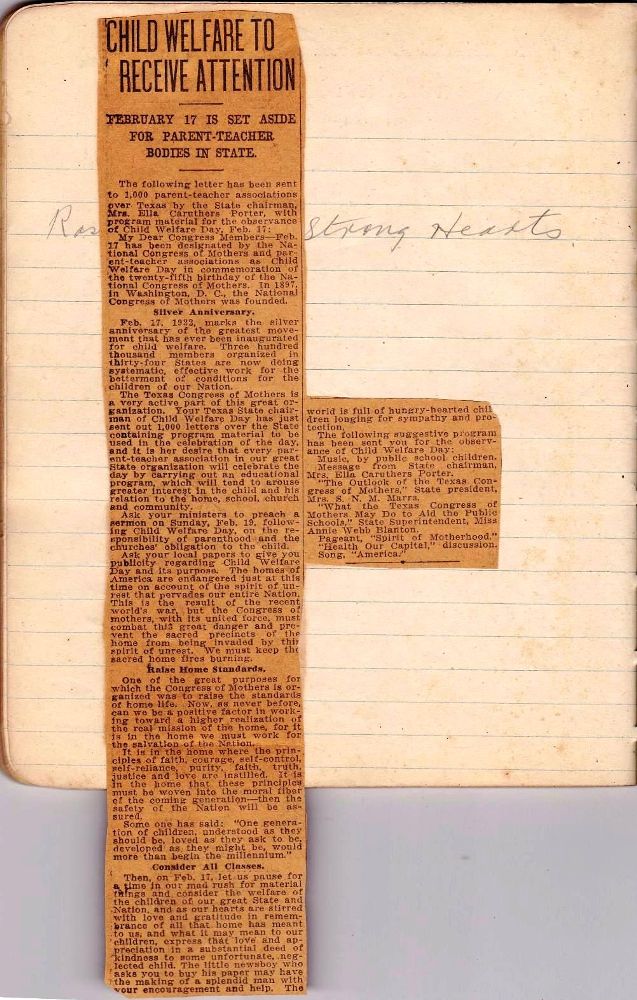 CHILD WELFARE TO
RECEIVE ATTENTION
FEBRUARY 17 IS SET ASIDE
FOR PARENT-TEACHER
BODIES IN STATE.
The following letter has been sent
to 1,000 parent-teacher associations
over Texas by the State chairman,
Mrs. Ella Caruthers Porter, with
program material for the observance
of Child Welfare Day, Feb. 17:
My Dear Congress Members—Feb.
17 has been designated by the Na-
tional Congress of Mothers and par-
ent-teacher associations as Child
Welfare Day in commemoration of
the twenty-fifth birthday of the Na-
tional Congress of Mothers. In 1897,
in Washington, D. C., the National
Congress of Mothers was founded.
Silver Anniversary.
Feb. 17, 1922, marks the silver
anniversary of the greatest move-
ment that has ever been inaugurated
for child welfare. Three hundred
thousand members organized in
thirty-four States are now doing
systematic, effective work for the
betterment of conditions for the
children of our Nation.
The Texas Congress of Mothers is
a very active part of this great or-
ganization. Your Texas State chair-
man of Child Welfare Day has just
sent out 1,000 letters over the State
containing program material to be
used in the celebration of the day,
and it is her desire that every par-
ent-teacher association in our great
State organization will celebrate the
day by carrying out an educational
program, which will tend to arouse
greater interest in the child and his
relation to the home, school, church
and community.
Ask your ministers to preach a
sermon on Sunday, Feb. 19, follow-
ing Child Welfare Day, on the re-
sponsibility of parenthood and the
churches' obligation to the child.
Ask your local papers to give you
publicity regarding Child Welfare
Day and its purpose. The homes of
America are endangered just at this
time on account of the spirit of un-
rest that pervades our entire Nation.
This is the result of the recent
world's war, but the Congress of
mothers, with its united force, must
combat this great danger and pre-
vent the sacred precincts of the
home from being invaded by this
spirit of unrest. We must keep the
sacred home fires burning.
Raise Home Standards.
One of the great purposes for
which the Congress of Mothers is or-
ganized was to raise the standards
of home life. Now, as never before,
can we be a positive factor in work-
ing toward a higher realization of
the real mission of the home, for it
is in the home we must work for
the salvation of the Nation.
It is in the home where the prin-
ciples of faith, courage, self-control,
self-reliance, purity, faith, truth,
justice and love are instilled. It is
in the home that these principles
must be woven into the moral fiber
of the coming generation—then the
safety of the Nation will be as-
sured.
Some one has said: "One genera-
tion of children, understood as they
should be, loved as they ask to be,
developed as they might be, would
more than begin the millennium."
Consider All Classes.
Then, on Feb. 17, let us pause for
a time in our mad rush for material
things and consider the welfare of
the children of our great State and
Nation, and as our hearts are stirred
with love and gratitude in remem-
brance of all that home has meant
to us, and what it may mean to our
children, express that love and ap-
preciation in a substantial deed of
kindness to some unfortunate, neg-
lected child. The little newsboy who
asks you to buy his paper may have
the making of a splendid man with
your encouragement and help. The
world is full of hungry-hearted chil-
dren longing for sympathy and pro-
tection.
The following suggestive program
has been sent you for the observ-
ance of Child Welfare Day:
Music, by public school children.
Message from State chairman,
Mrs. Ella Caruthers Porter.
"The Outlook of the Texas Con-
gress of Mothers," State president,
Mrs. S. N. M. Marrs.
"What the Texas Congress of
Mothers May Do to Aid the Public
Schools," State Superintendent, Miss
Annie Webb Blanton.
Pageant, "Spirit of Motherhood."
"Health Our Capital," discussion.
Song, "America."
Strong Hearts